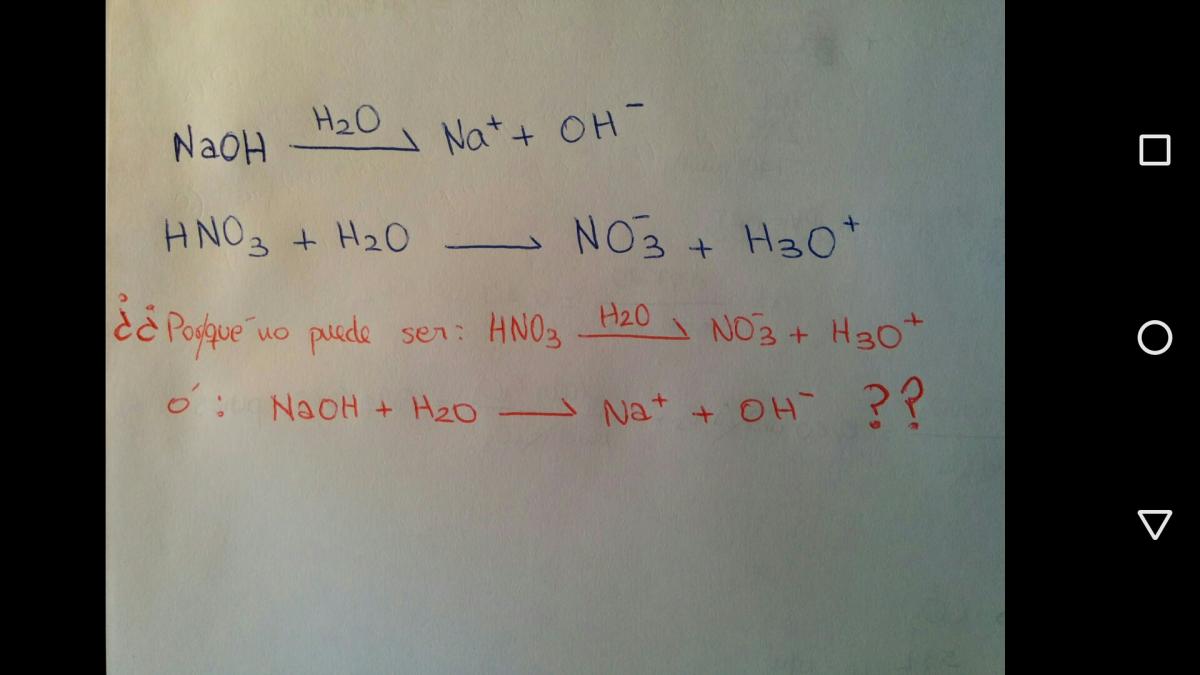 NaOH H2O Na⁺ + OH⁻
HNO3 + H2O → NO3⁻ + H3O⁺
¿¿Porque no puede ser: HNO3 H2O NO3⁻ + H3O⁺
ó: NaOH + H2O → Na⁺ + OH⁻ ??